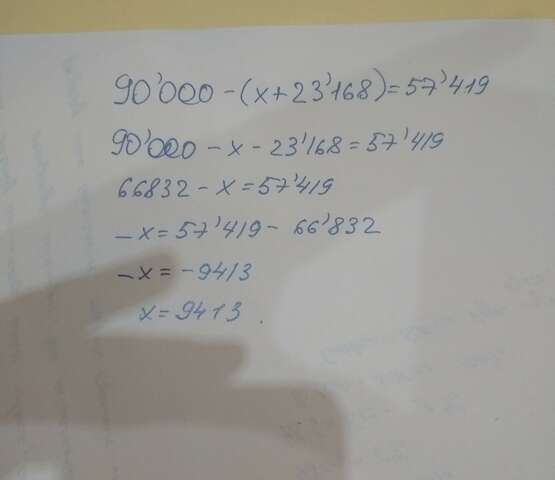 90'000 - (x + 23'168) = 57'419
90'000 - x - 23'168 = 57'419
66832 - x = 57'419
-x = 57'419 - 66'832
-x = -9413
x = 9413.